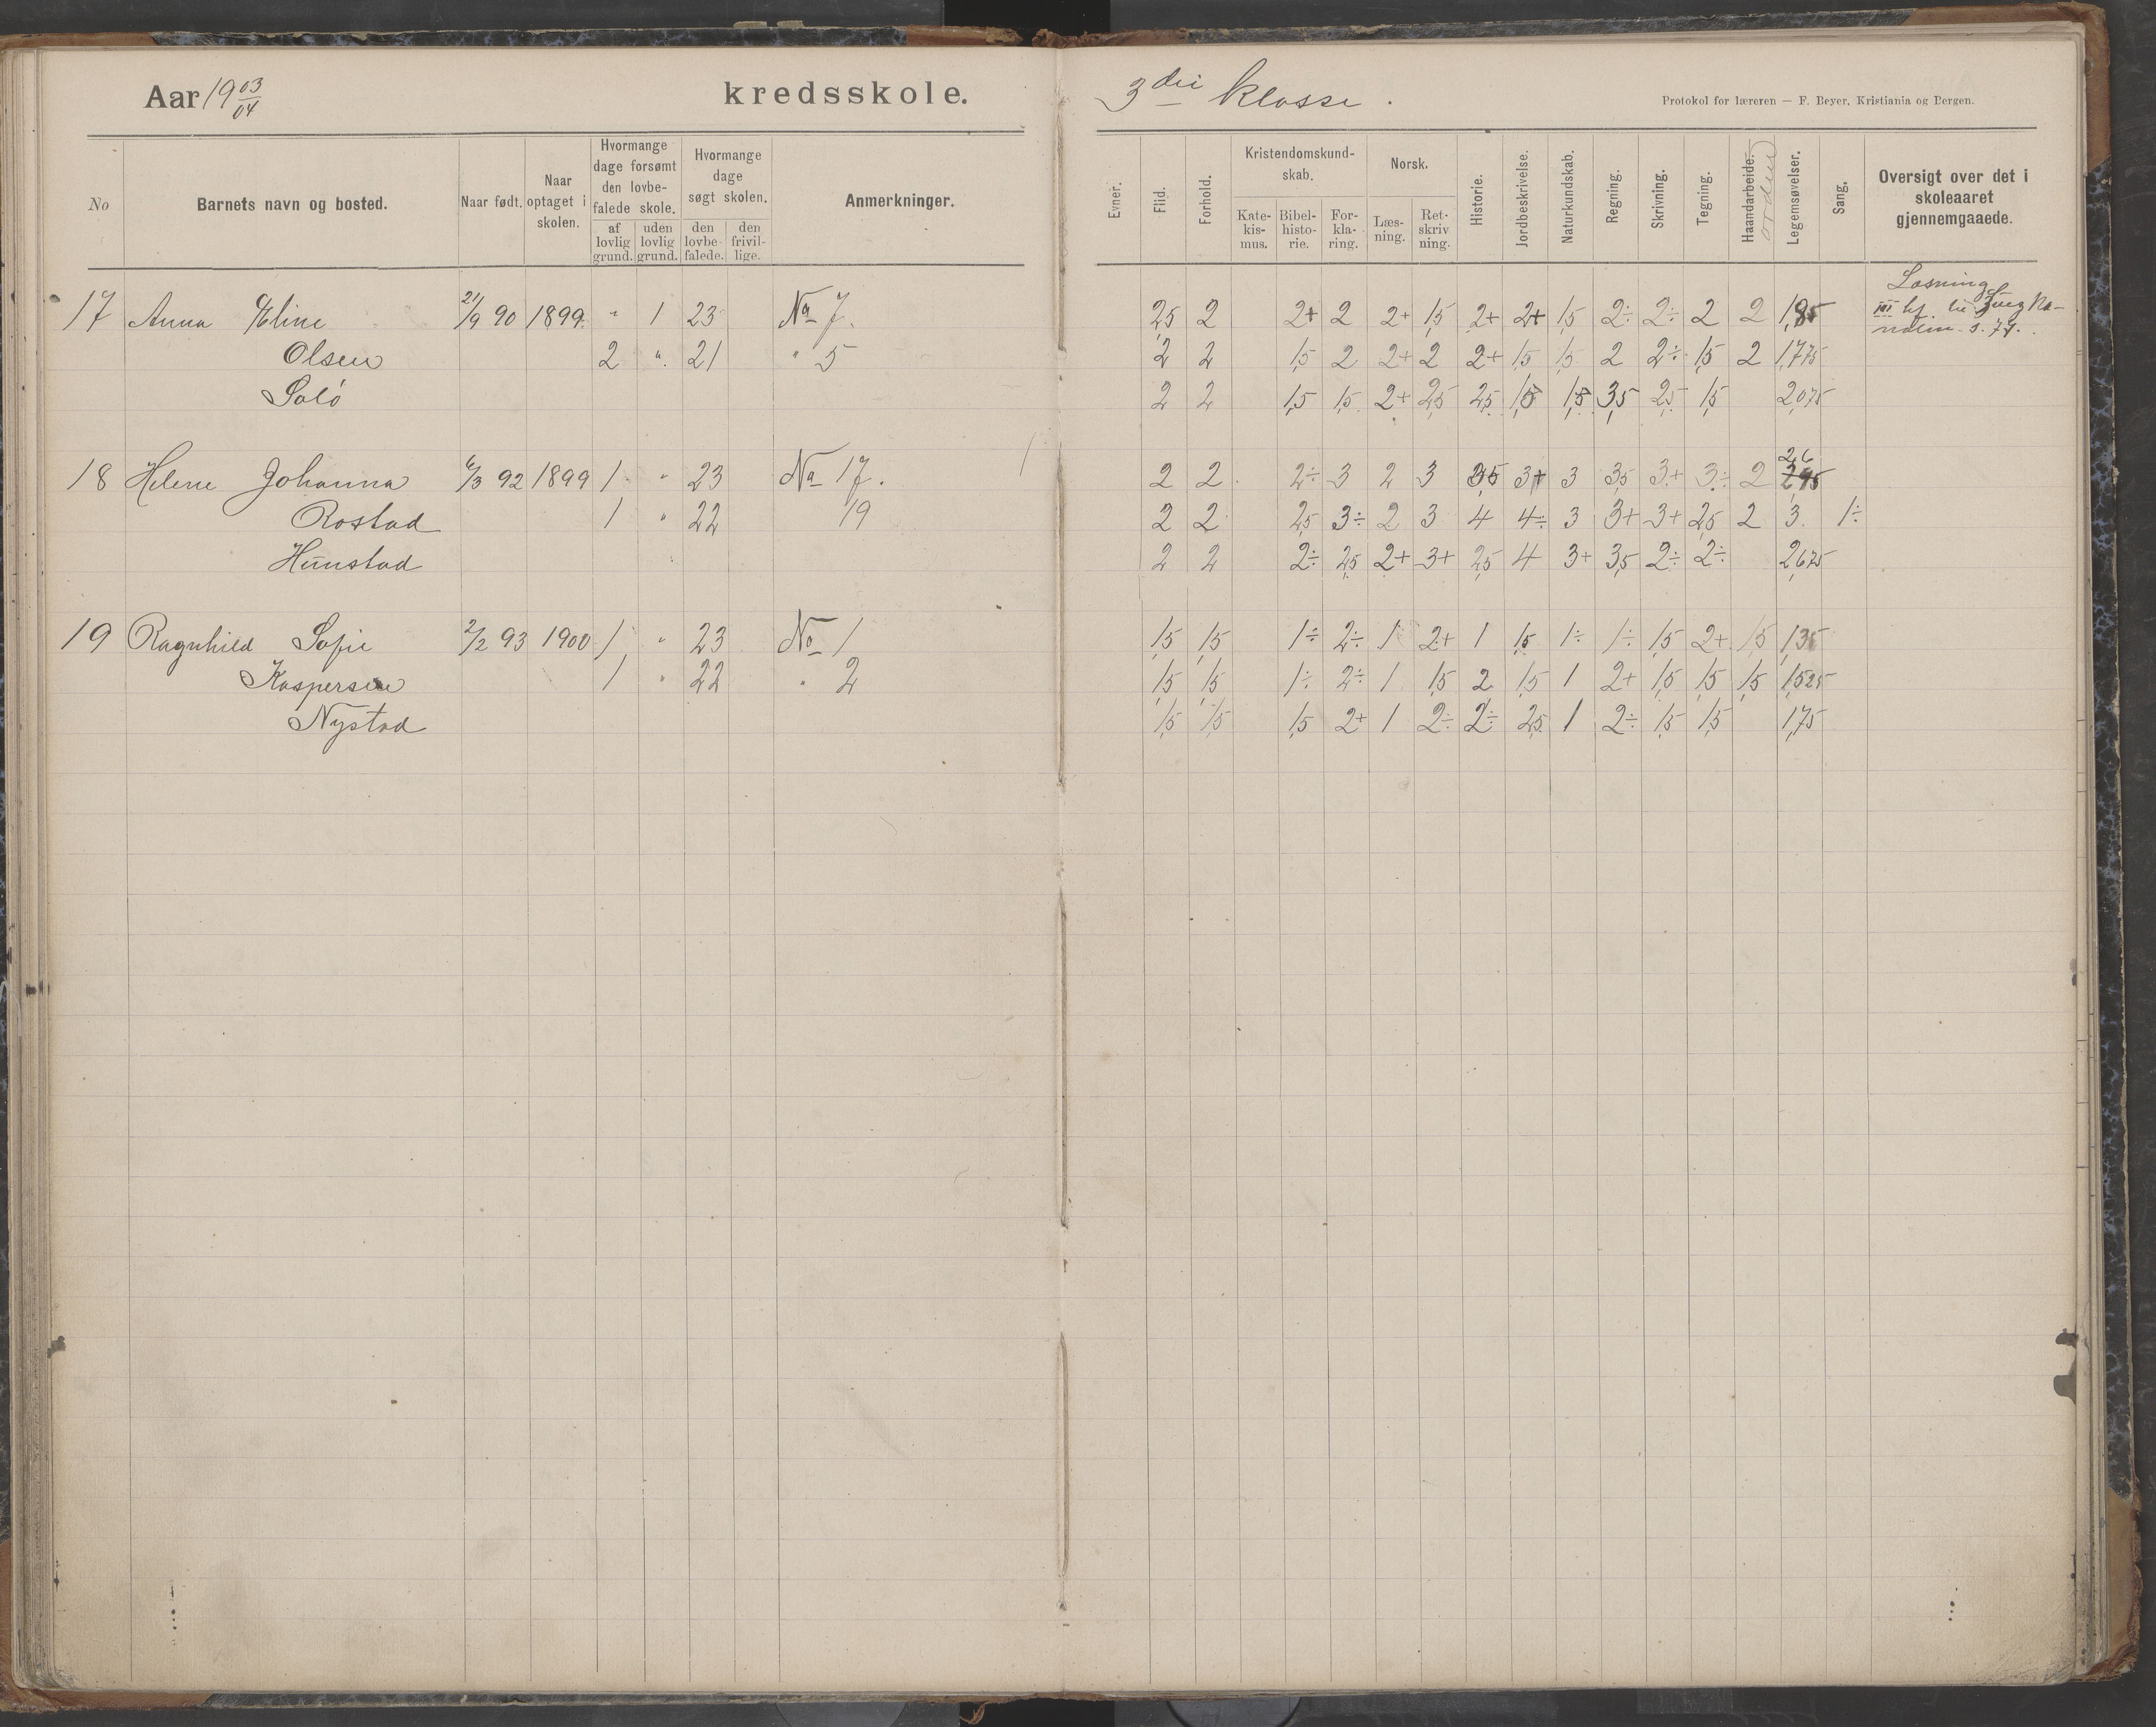 Aar 19 03/04 kredsskole. 3die klasse.
Protokol for læreren — F. Beyer, Kristiania og Bergen.
No
Barnets navn og bosted.
Naar født.
Naar optaget i skolen.
Hvormange dage forsømt den lovbefalede skole.
af lovlig grund.
uden lovlig grund.
Hvormange dage søgt skolen.
den lovbefalede.
den frivillige.
Anmerkninger.
Evner.
Flid.
Forhold.
Kristendomskundskab.
Katekismus.
Bibelhistorie.
Forklaring.
Norsk.
Læsning.
Retskrivning.
Historie.
Jordbeskrivelse.
Naturkundskab.
Regning.
Skrivning.
Tegning.
Haandarbeide.
orden
Legemsøvelser.
Sang.
Oversigt over det i skoleaaret gjennemgaaede.
Læsning
17 Anna Eline 21/9 90 1899 " 1 23 No 7. 2,5 2 2+ 2 2+ 1,5 2+ 2+ 1,5 2÷ 2÷ 2 2 1,85
Olsen 2 " 21 " 5 2 2 1,5 2 2+ 2 2+ 1,5 1,5 2 2÷ 1,5 2 1,775
Salö 2 2 1,5 1,5 2+ 2,5 2,5 1,5 1,5 3,5 2,5 1,5 2,075
2,6
18 Helene Johanna 6/3 92 1899 1 " 23 No 17. 2 2 2÷ 3 2 3 3,5 3+ 3 3,5 3+ 3÷ 2
Rostad 1 " 22 19 2 2 2,5 3÷ 2 3 4 4÷ 3 3+ 3+ 2,5 2 3. 1÷
Hunstad 2 2 2÷ 2,5 2+ 3+ 2,5 4 3+ 3,5 2÷ 2÷ 2,675
19 Ragnhild Sofie 2/2 93 1900 1 " 23 No 1 1,5 1,5 1÷ 2÷ 1 2+ 1 1,5 1÷ 1÷ 1,5 2+ 1,5 1,35
Kaspersen 1 " 22 " 2 1,5 1,5 1÷ 2÷ 1 1,5 2 1,5 1 2+ 1,5 1,5 1,5 1,525
Nystad 1,5 1,5 1,5 2+ 1 2÷ 2÷ 2,5 1 2÷ 1,5 1,5 1,75